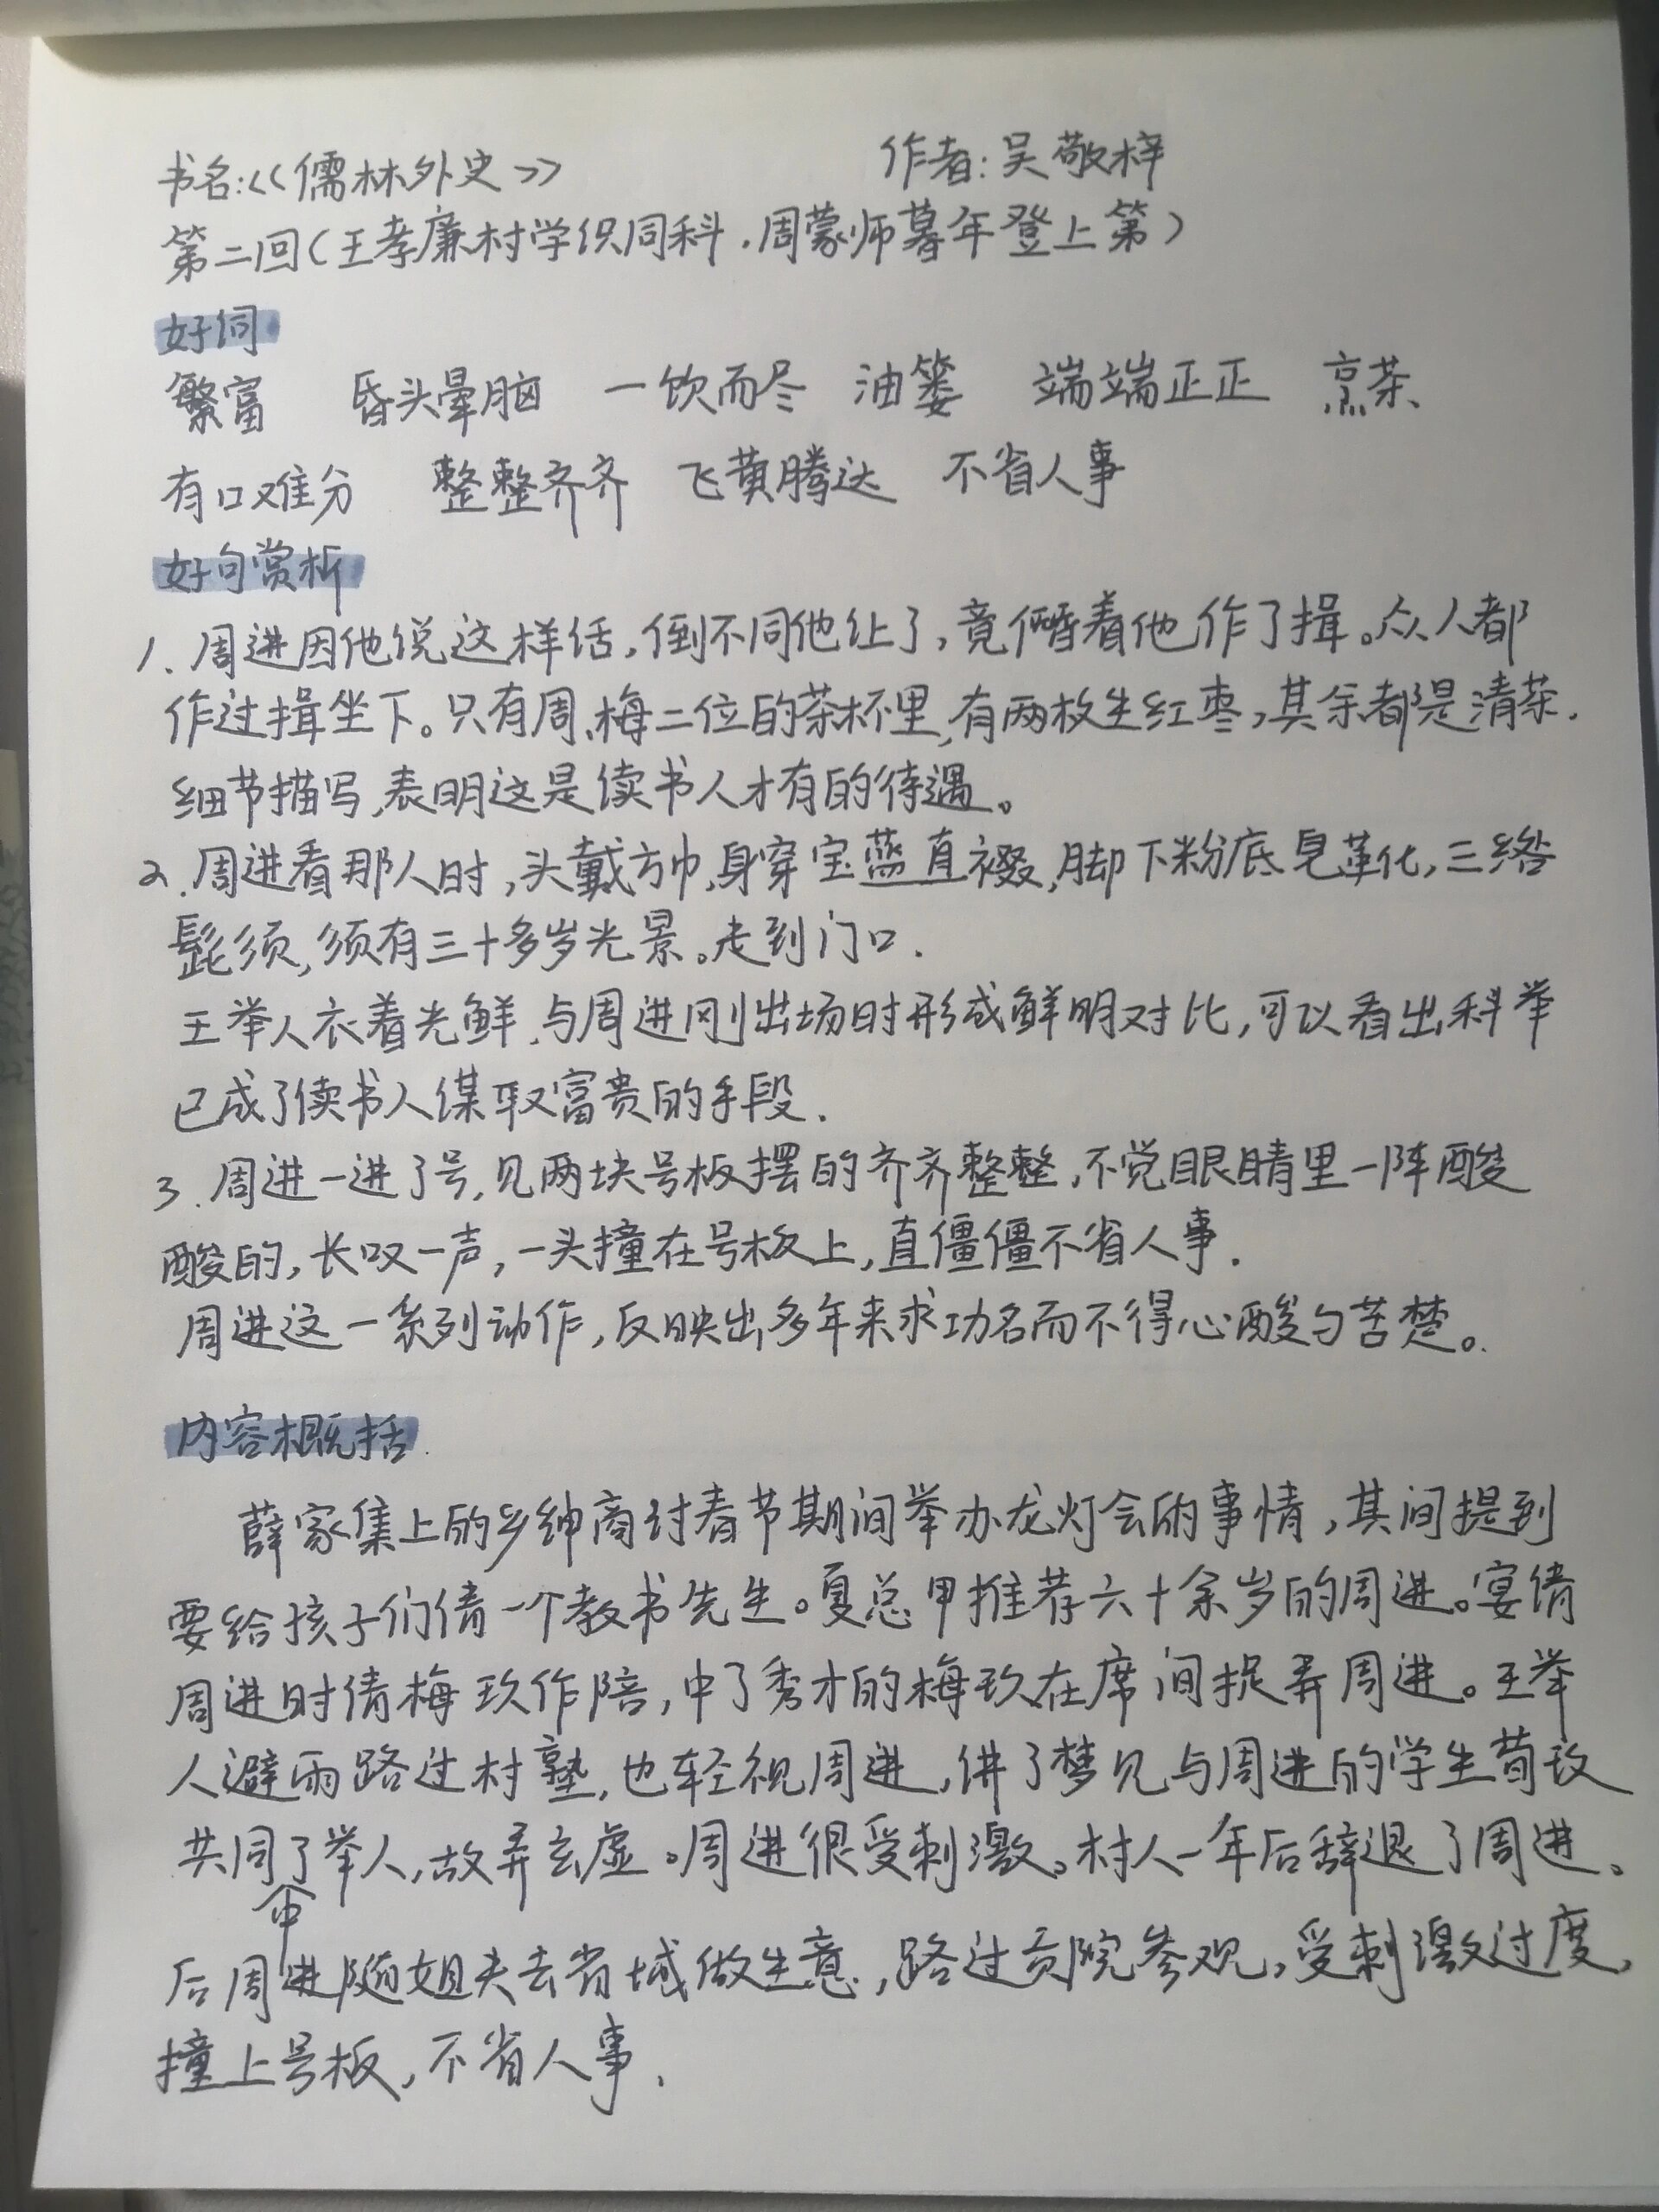 书名:<<儒林外史>> 作者:吴敬梓
第二回(王孝廉村学识同科.周蒙师暮年登上第)
好词
繁富 昏头晕脑 一饮而尽 油篓 端端正正 烹茶、
有口难分 整整齐齐 飞黄腾达 不省人事
好句赏析
1、周进因他说这样话,倒不同他让了,竟僭着他作了揖。众人都
作过揖坐下。只有周、梅二位的茶杯里,有两枚生红枣,其余都是清茶.
细节描写,表明这是读书人才有的待遇。
2.周进看那人时,头戴方巾,身穿宝蓝直裰,脚下粉底皂革化,三绺
髭须,须有三十多岁光景。走到门口.
王举人衣着光鲜,与周进刚出场时形成鲜明对比,可以看出科举
已成了读书人谋取富贵的手段.
3.周进一进了号,见两块号板摆的齐齐整整,不觉眼睛里一阵酸
酸的,长叹一声,一头撞在号板上,直僵僵不省人事.
周进这一系列动作,反映出多年来求功名而不得心酸与苦楚。
内容概括.
薛家集上的乡绅商讨春节期间举办龙灯会的事情,其间提到
要给孩子们倩一个教书先生。夏总甲推荐六十余岁的周进。宴倩
周进时倩梅玖作陪,中了秀才的梅玖在席间捉弄周进。王举
人避雨路过村塾,也轻视周进,讲了梦见与周进的学生荀玫
共同中了举人,故弄玄虚。周进很受刺激。村人一年后辞退了周进。
后周进随姐夫去省城做生意,路过贡院参观,受刺激过度,
撞上号板,不省人事.